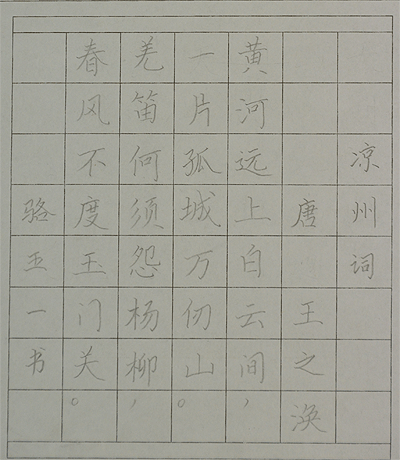 凉州词
唐 王之涣
黄河远上白云间，
一片孤城万仞山。
羌笛何须怨杨柳，
春风不度玉门关。
骆王一书